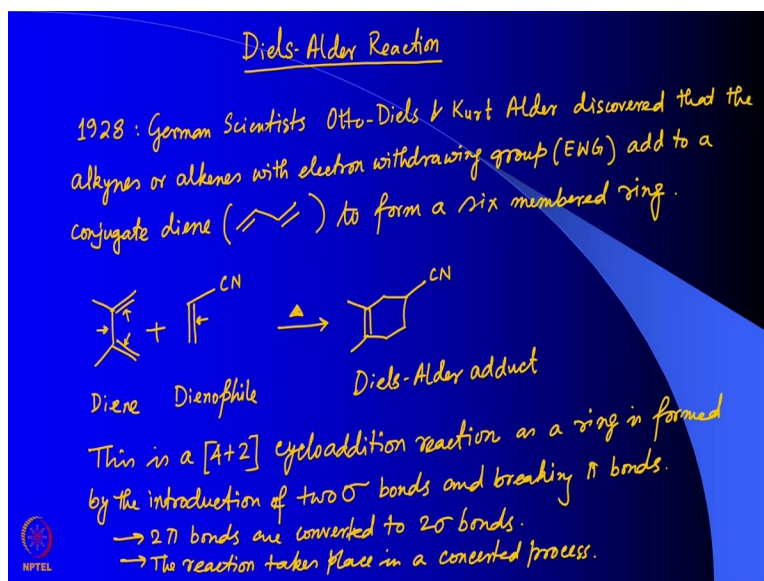 Diels-Alder Reaction
1928 : German Scientists Otto-Diels & Kurt Alder discovered that the
alkynes or alkenes with electron withdrawing group (EWG) add to a
conjugate diene ( ) to form a six membered ring.
CN
CN
+
Δ
Diene Dienophile Diels-Alder adduct
This is a [4+2] cycloaddition reaction as a ring is formed
by the introduction of two σ bonds and breaking π bonds.
→ 2π bonds are converted to 2σ bonds.
→ The reaction takes place in a concerted process.
NPTEL